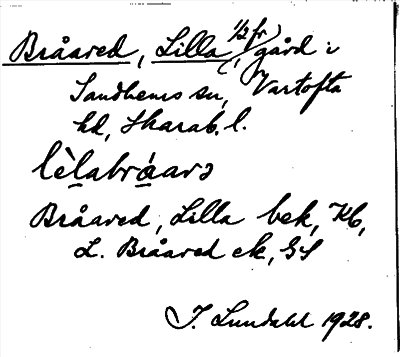 Bråared, Lilla (1/2 fr), gård i
Sandhems sn, Vartofta
hd, Skarab. l.
lèlabråarə
Bråared, Lilla bek, Kb,
L. Bråared ek, GS
J. Lundahl 1928.